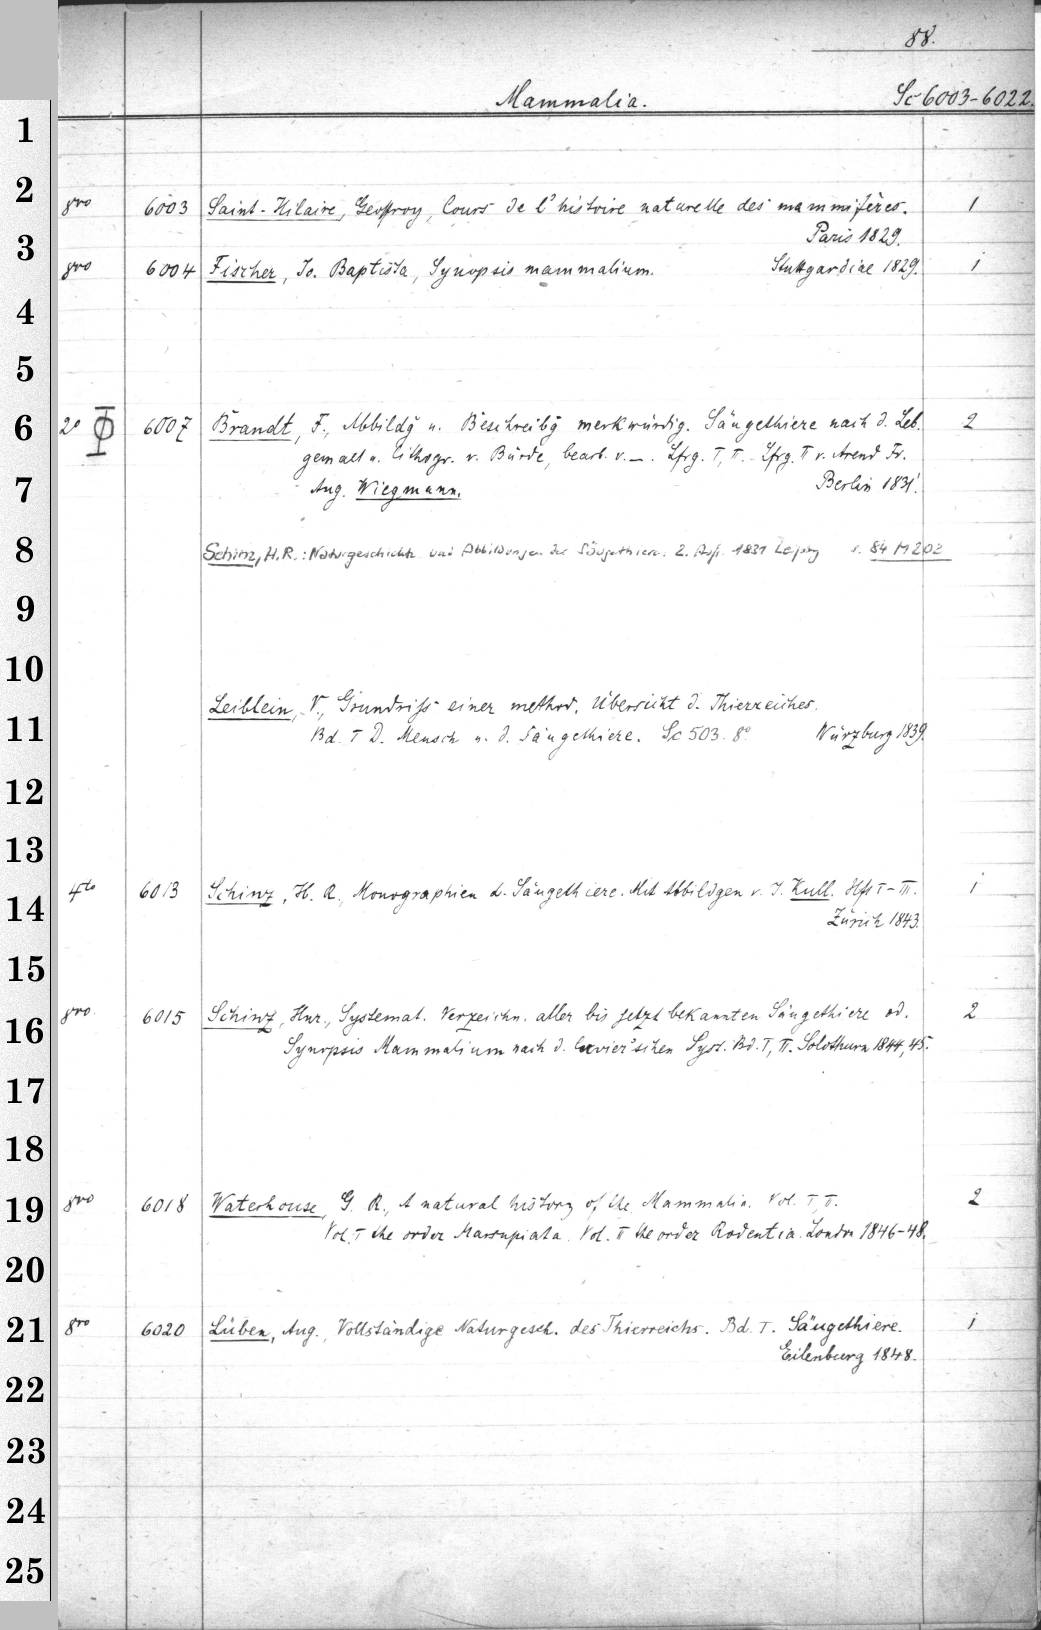 88.
Mammalia. Sc 6003-6022.
1
2
8vo 6003 Saint-Hilaire, Geoffroy, Cours de l'histoire naturelle des mammifères. 1
Paris 1829.
3
8vo 6004 Fischer, Jo. Baptista, Synopsis mammalium. Stuttgardiae 1829. 1
4
5
6
2° 6007 Brandt, F., Abbildg u. Beschreibg merkwürdig. Säugethiere nach d. Leb. 2
gemalt u. lithogr. v. Bürde, bearb. v. —. Lfrg. I, II. Lfrg. II v. Arend Fr.
7
Aug. Wiegmann. Berlin 1831.
8
Schinz, H.R.: Naturgeschichte und Abbildungen der Säugethiere. 2. Aufl. 1831 Leipzig s. 84 M 202
9
10
Leiblein, V., Grundriss einer method. Übersicht d. Thierreiches.
11
Bd. I D. Mensch u. d. Säugethiere. Sc 503. 8° Würzburg 1839.
12
13
14
4to 6013 Schinz, H. R., Monographien d. Säugethiere. Mit Abbildgen v. J. Kull. Hft I-III. 1
Zürich 1843.
15
16
8vo. 6015 Schinz, Hnr., Systemat. Verzeichn. aller bis jetzt bekannten Säugethiere od. 2
Synopsis Mammalium nach d. Cuvier'schen Syst. Bd. I, II. Solothurn 1844, 45.
17
18
19
8vo 6018 Waterhouse, G. R., A natural history of the Mammalia. Vol. I, II. 2
Vol. I the order Marsupiata. Vol. II the order Rodentia. London 1846-48.
20
21
8vo 6020 Lüben, Aug., Vollständige Naturgesch. des Thierreichs. Bd. I. Säugethiere. 1
Eilenburg 1848.
22
23
24
25